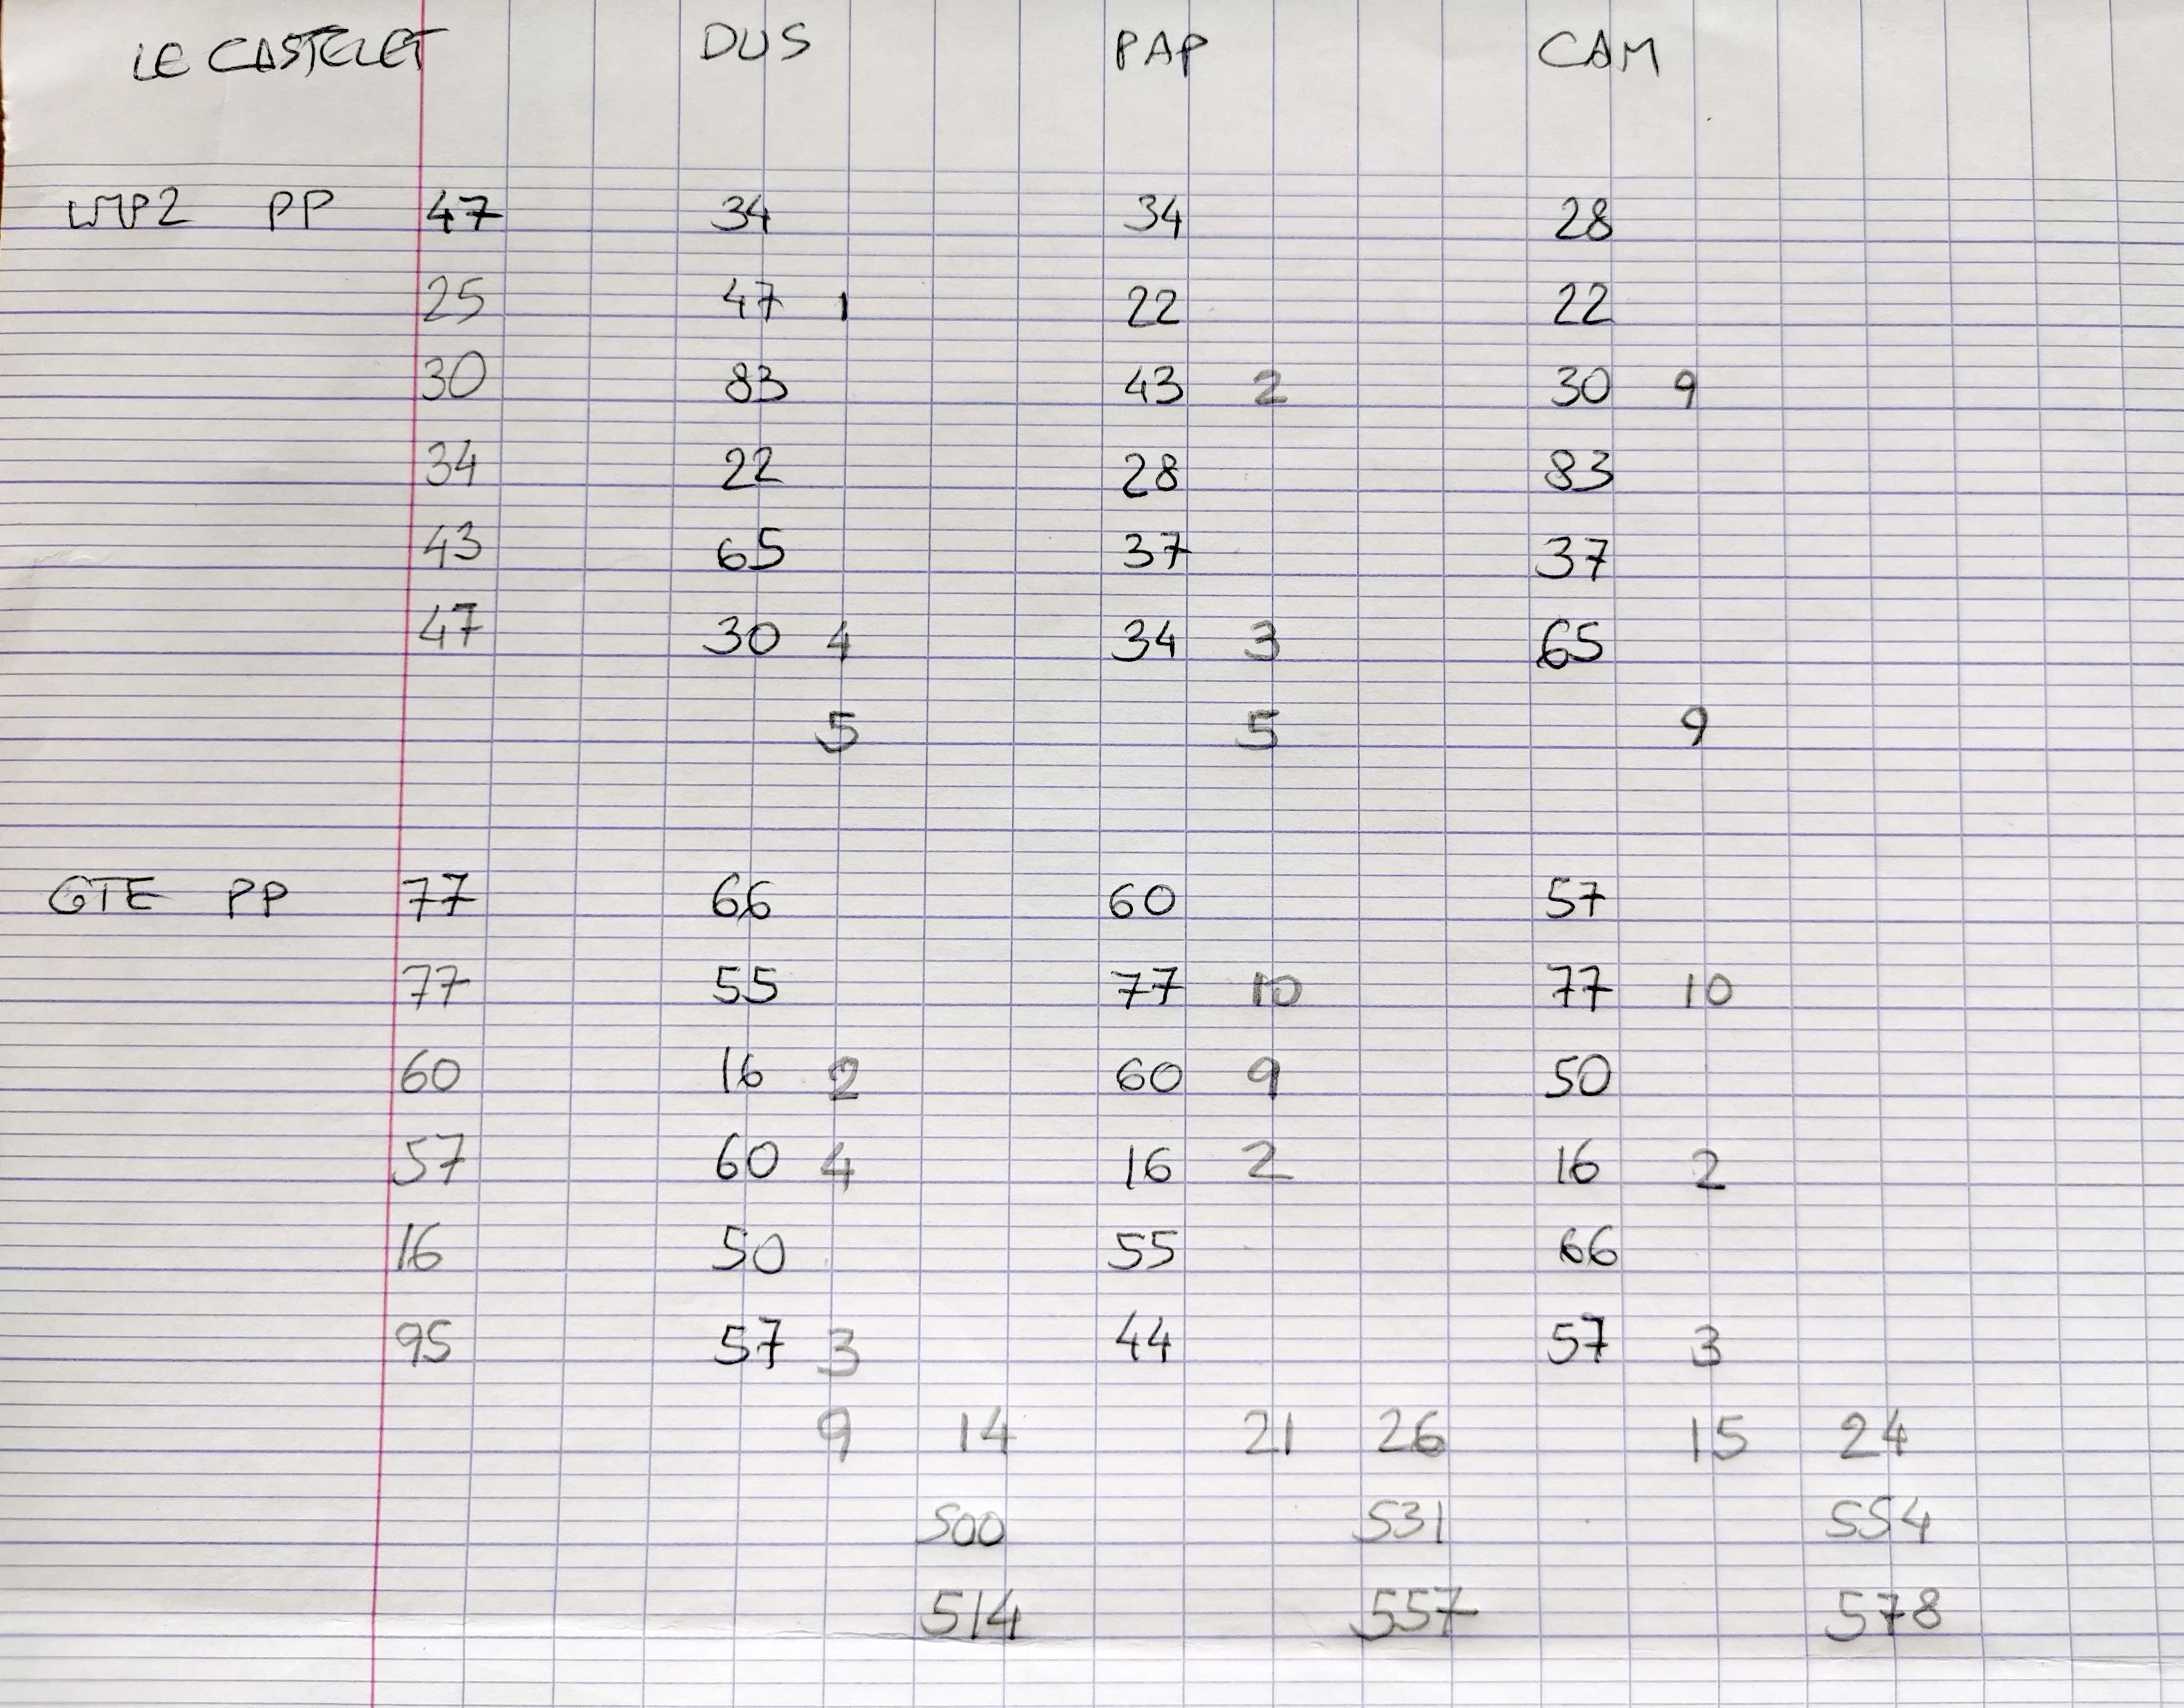 LE CASTELET DUS PAP CAM
LMP2 PP 47 34 34 28
25 47 1 22 22
30 83 43 2 30 9
34 22 28 83
43 65 37 37
47 30 4 34 3 65
5 5 9
GTE PP 77 66 60 57
77 55 77 10 77 10
60 16 2 60 9 50
57 60 4 16 2 16 2
16 50 55 66
95 57 3 44 57 3
9 14 21 26 15 24
500 531 554
514 557 578